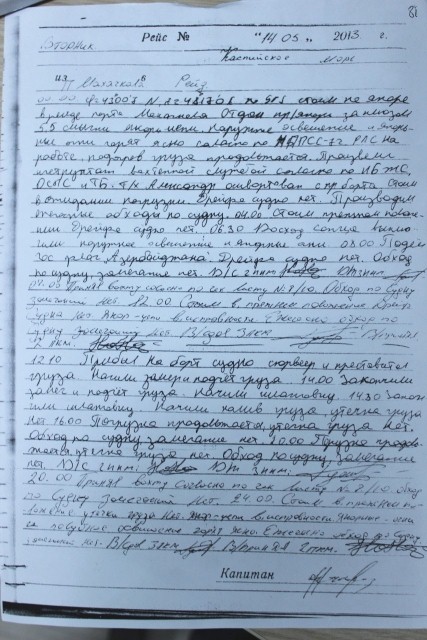 81
Вторник Рейс № "14 05" 2013 г.
Каспийское море
из п Махачкала в Рейд
00.00 φ=43°00'5 N, стоим на якоре
в рейде порта Махачкала. Отдан пр/якорь
5,5 смычки якорь цепи. Наружное освещение и якор-
ные огни горят ясно согласно МППСС-72 РЛС на
работе, подогрев груза продолжается. Произвели
инструктаж вахтенной службой согласно по ПБ ЖО,
и ТБ. Т/х Александр ошвартован с пр борта. Стоим
в ожидании погрузки. Дрейфа судна нет. Производим
обходы по судну. 04.00 Стоим в прежнем положе-
нии Дрейфа судна нет. 06.30 Восход солнца выклю-
чили наружное освещение и якорные огни. 08.00 Подъем
Гос флаг Азербайджана. Дрейфа судна нет. Обход
по судну, замечание нет. В/С 2 пкм
Принял вахту согласно по чек листу №8/10. Обход по Судну
замечаний Нет. 12.00 Стоим в прежнем положение Дрейф
Судна Нет. Якор-цепи в исправности Ежечасно обход по
судну замечании Нет. В/сдов 3пкм В/принял
2 пкм.
12.10 Прибыл на борт судно сюрвейер и представител
груза. Начили замер и подчет груза. 14.00 Закончили
замер и подчет груза. Начили шланговку. 14.30 Закон-
чили шланговку. Начили налив груза, утечка груза
Нет. 16.00 Погрузка продолжается, утечка груза Нет.
Обход по судну замечание нет. 20.00 Погрузка продол-
жается, утечка груза нет. Обход по судну, замечание
нет. В/С 2 пкм
20.00 Принял вахту Согласно по чек листу №8/10. Обход
по Судну замечаний Нет. 24.00. Стоим в прежнем по-
ложение утечки груза Нет. Якор-цепи в исправности. Якорние-огни
и освишения горят ясно. Ежечасно обход по судну
замечаний Нет. В/сдов 3пкм В/принял 2 пкм.
Капитан